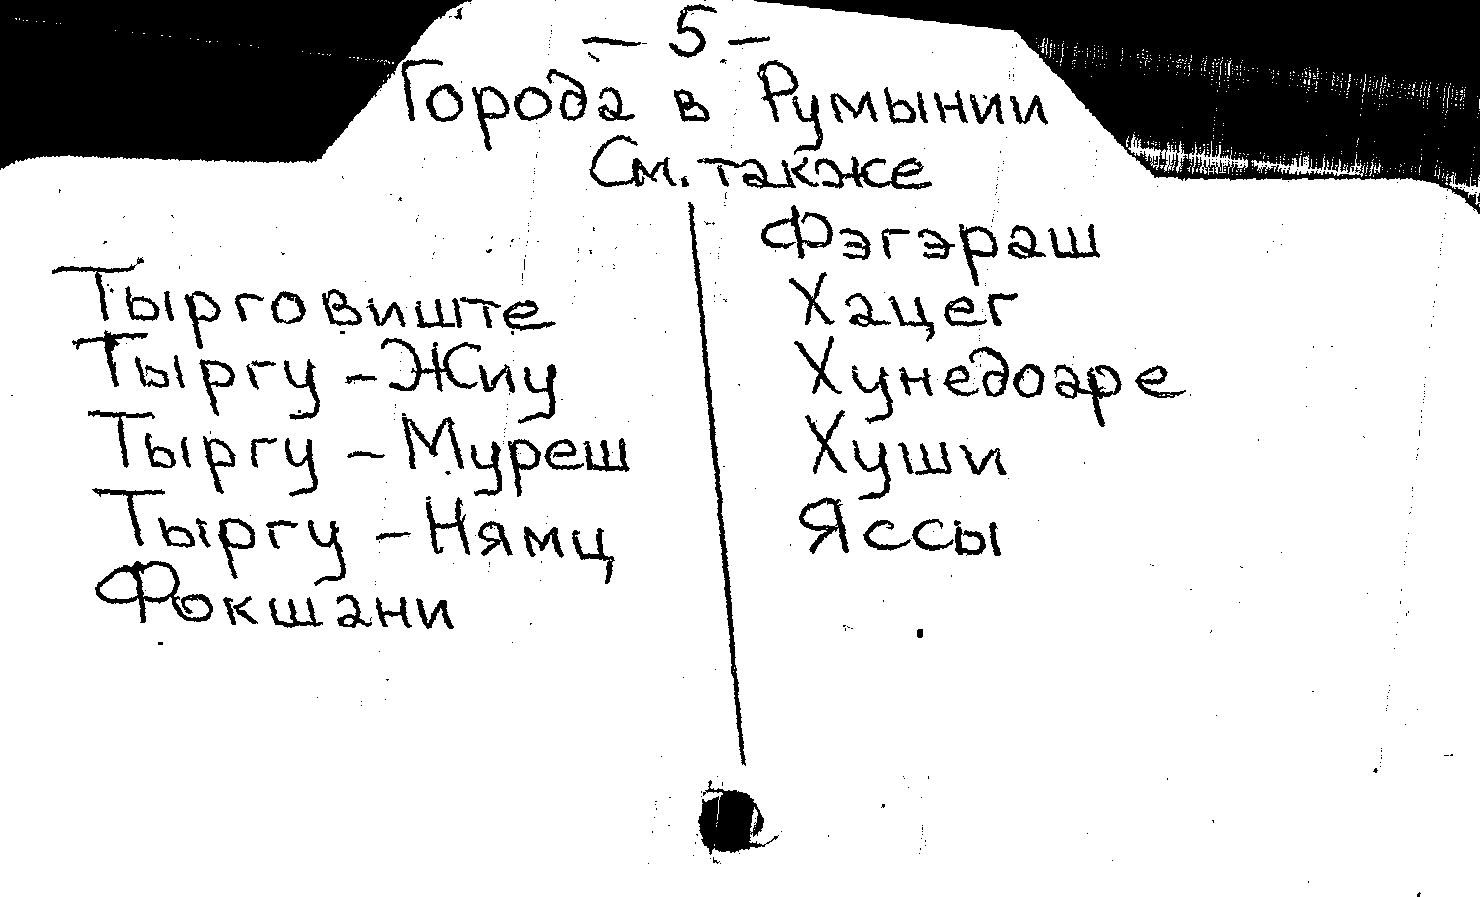 — 5 —
Города в Румынии
См. также
Тырговиште
Тыргу - Жиу
Тыргу - Муреш
Тыргу - Нямц
Фокшани
Фэгэраш
Хацег
Хунедоаре
Хуши
Яссы